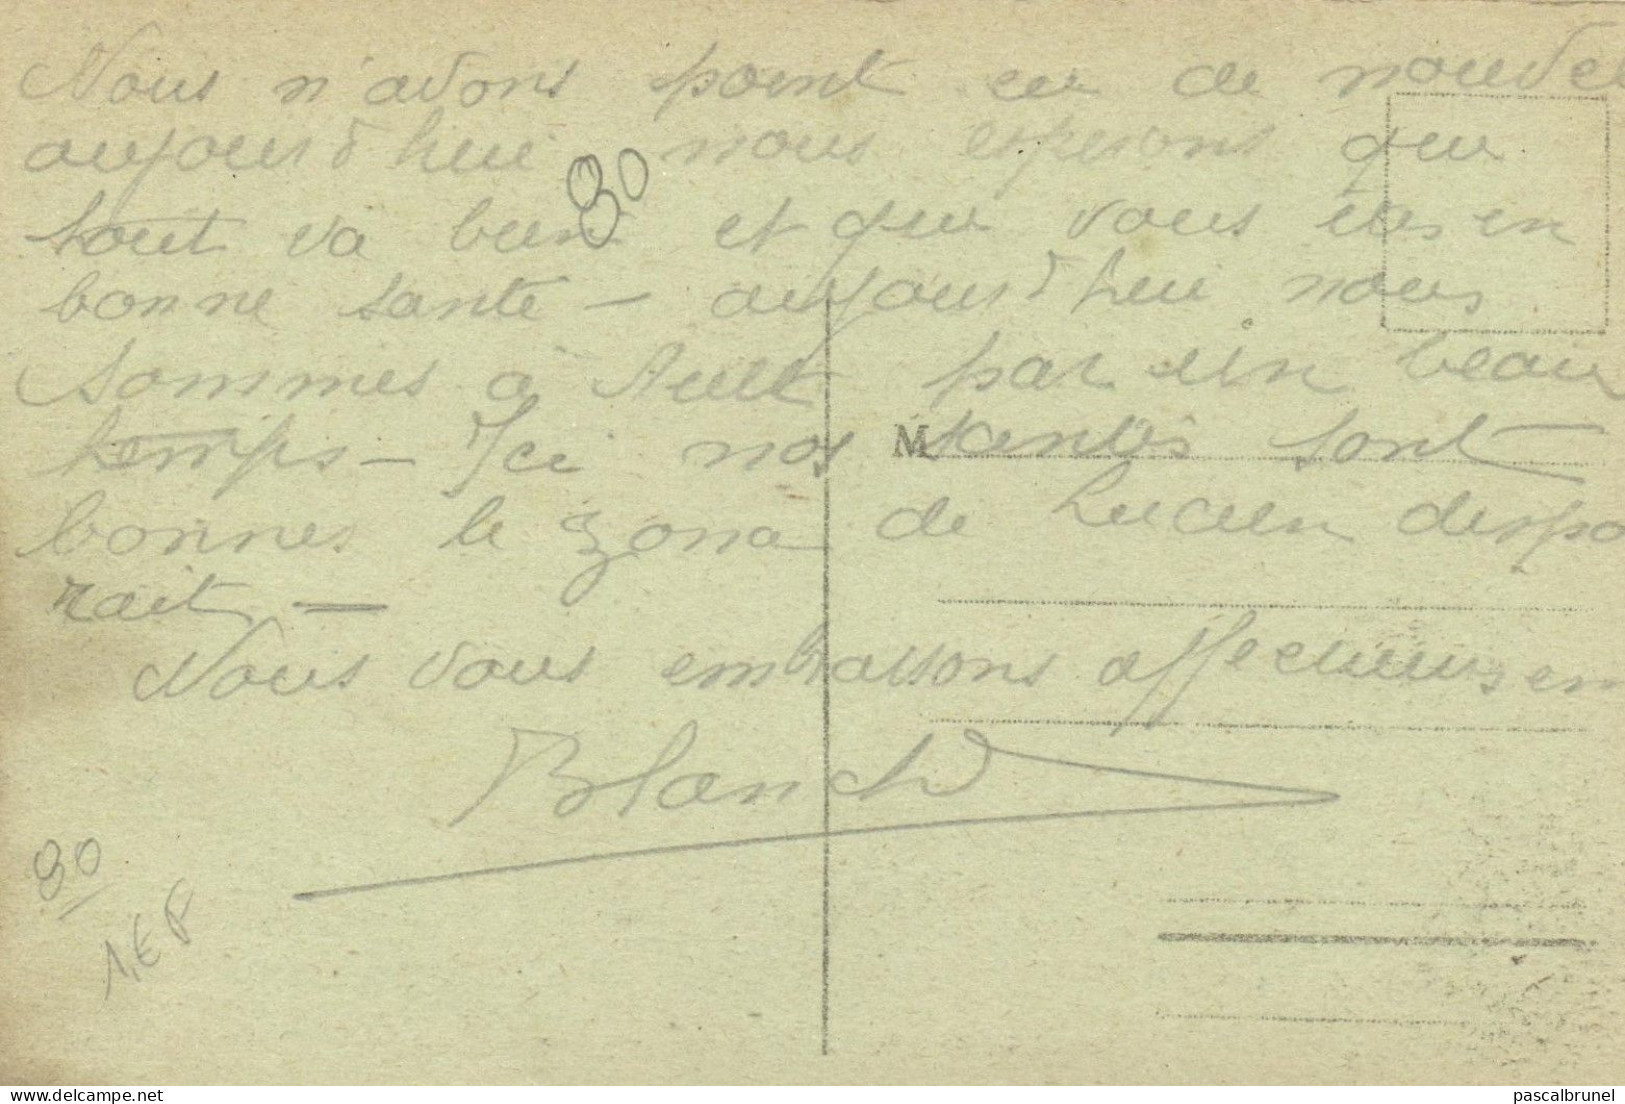 Nous n'avons point eu de nouvel
aujourd'hui nous esperons que
80
tout va bien et que vous etes en
bonne santé – aujourd'hui nous
sommes à Ault par un beau
temps – Ici nos santés sont
M
bonnes le zona de Lucien dispa
rait –
Nous vous embrassons affectueusem
Blanche
80
1,€ F
delcampe.net
pascalbrunel